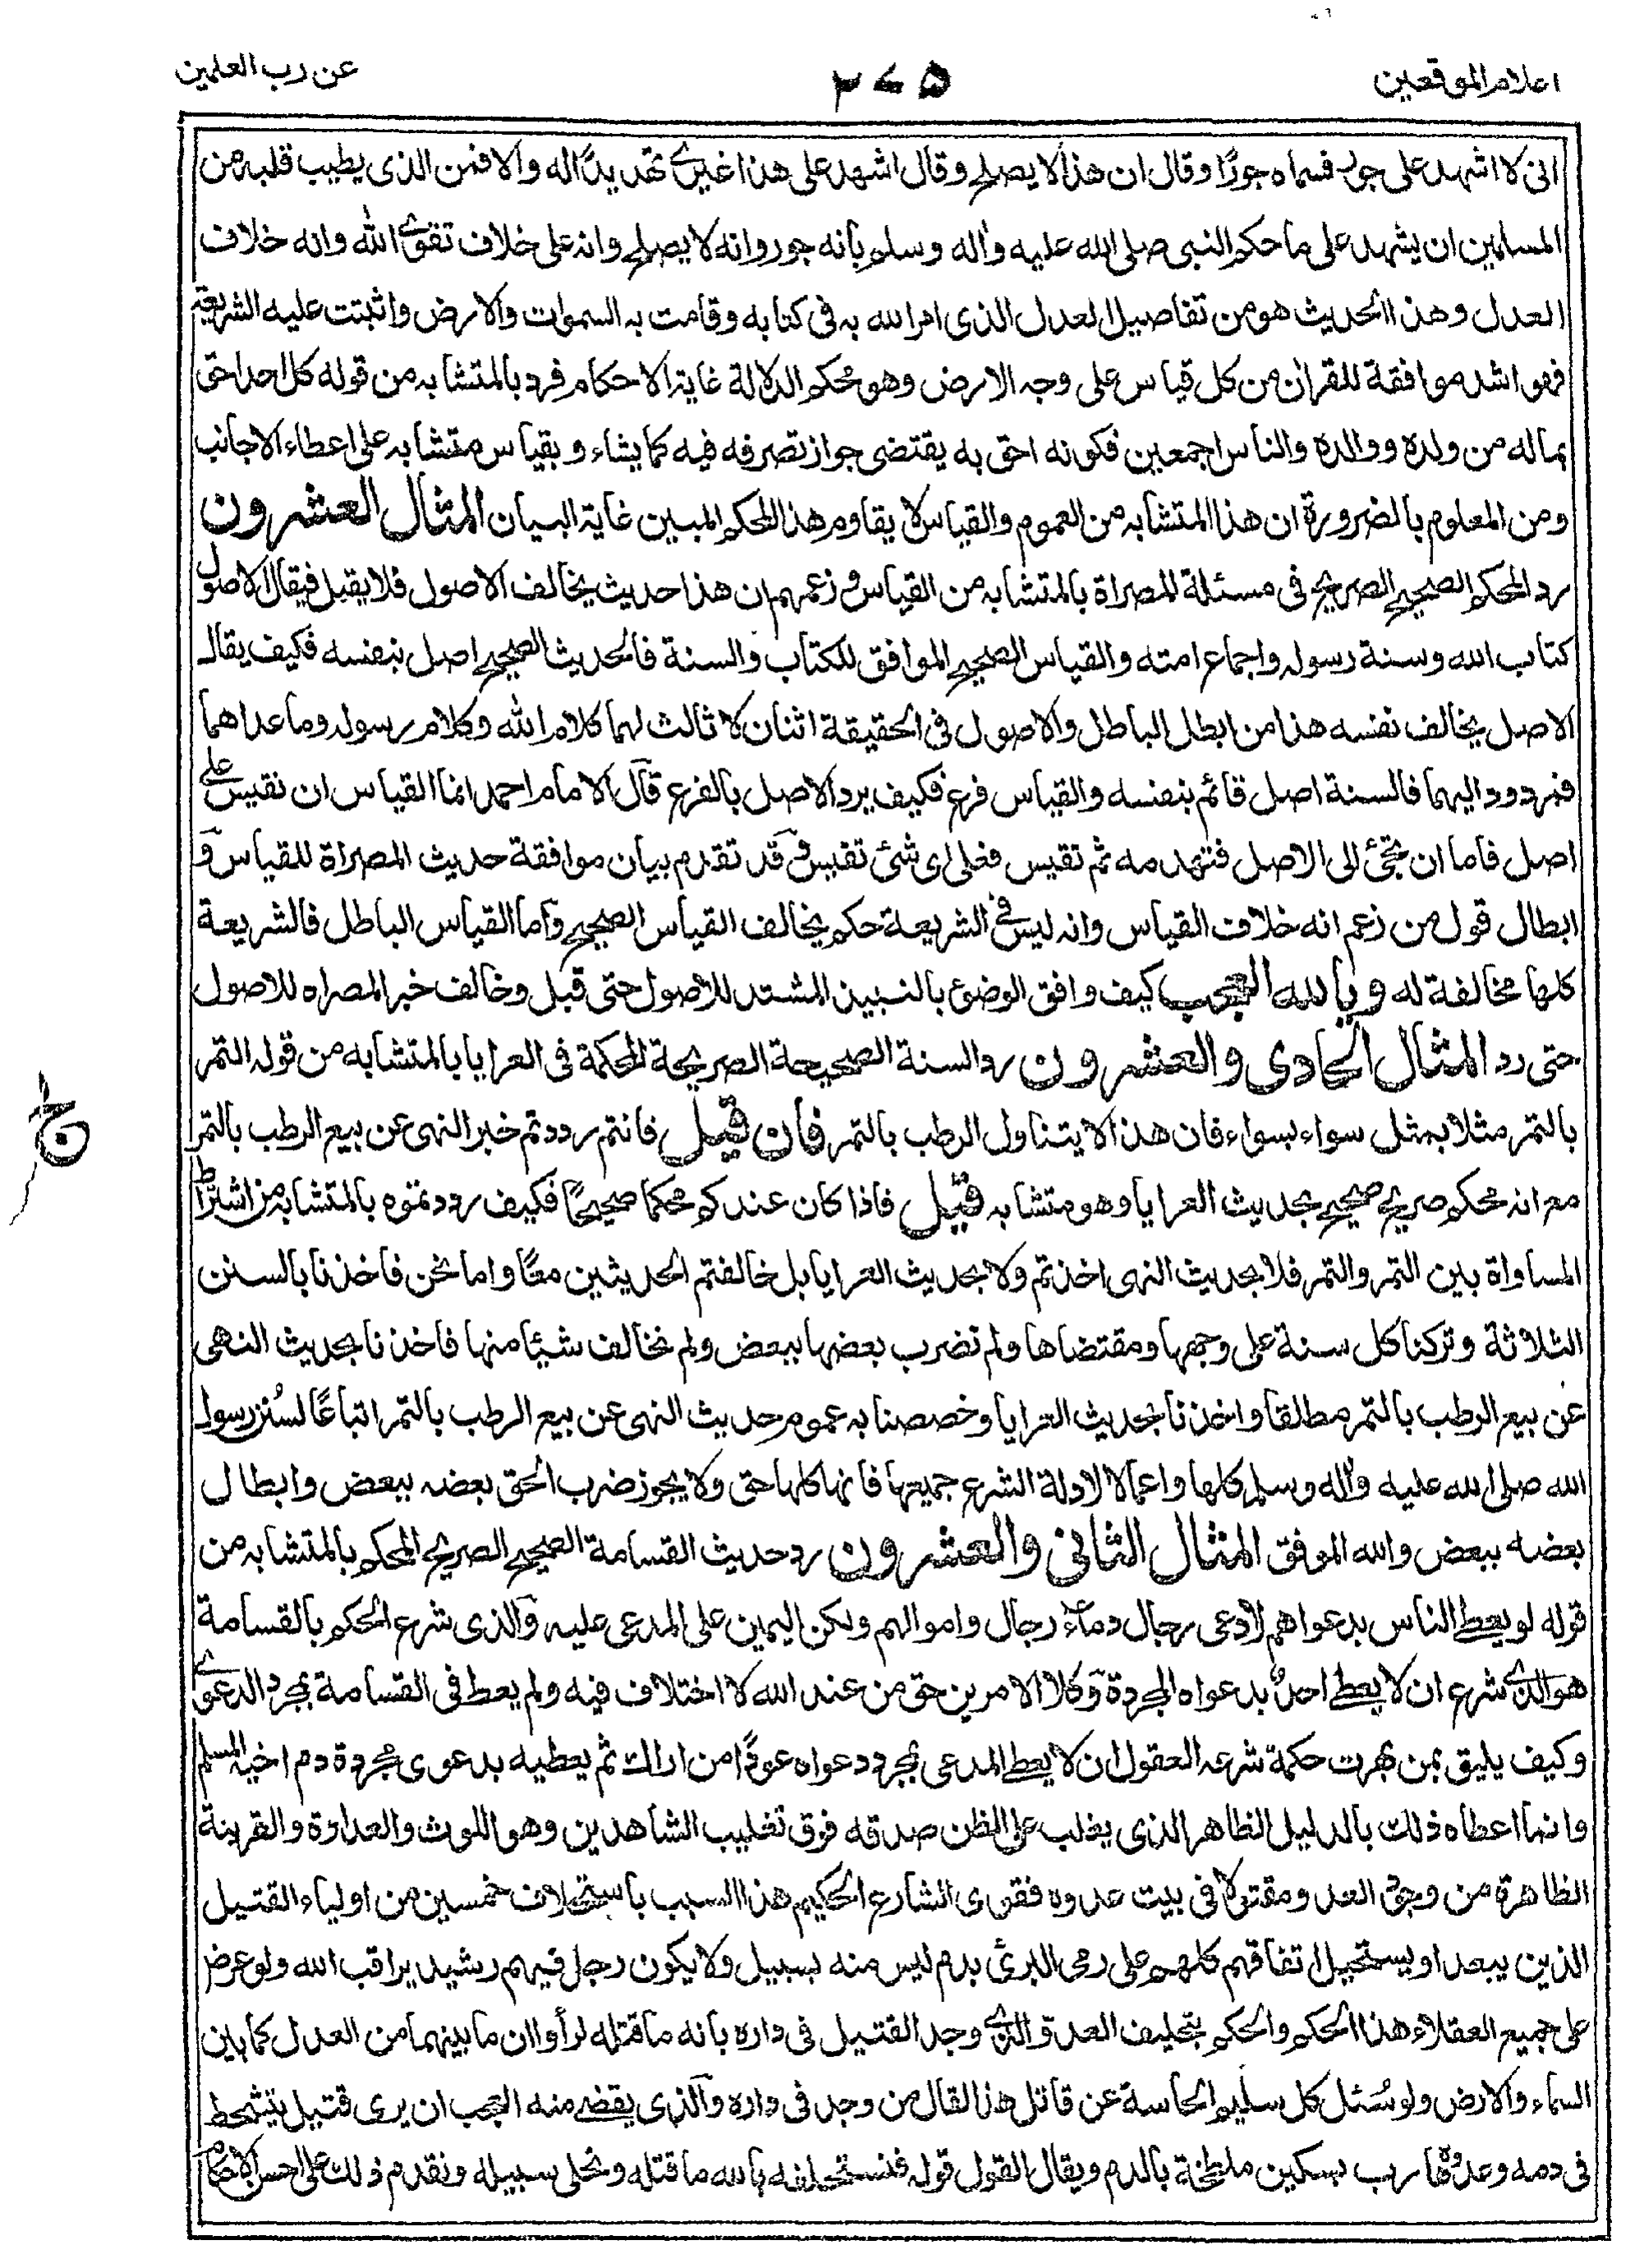 اعلام الموقعين
٢٧٥
عن رب العلمين
انى لا اشهد على جور فسماه جورًا وقال ان هذا لا يصلح وقال اشهد على هذا غيرى تهديدًا له والا فمن الذى يطيب قلبه من
المسلمين ان يشهد على ما حكم النبى صلى الله عليه واله وسلم بأنه جور وانه لا يصلح وانه على خلاف تقوى الله وانه خلاف
العدل وهذا الحديث هو من تفاصيل العدل الذى امر الله به فى كتابه وقامت به السموات والارض واثبتت عليه الشريعة
فهو اشد موافقة للقران من كل قياس على وجه الارض وهو محكم الدلالة غاية الاحكام فرد بالمتشابه من قوله كل احد احق
بماله من ولده ووالده والناس اجمعين فكونه احق به يقتضى جواز تصرفه فيه كما يشاء وبقياس متشابه على اعطاء الاجانب
ومن المعلوم بالضرورة ان هذا المتشابه من العموم والقياس لا يقاوم هذا المحكم المبين غاية البيان المثال العشرون
رد المحكم الصحيح الصريح فى مسئلة المصراة بالمتشابه من القياس وزعمهم ان هذا حديث يخالف الاصول فلا يقبل فيقال الاصول
كتاب الله وسنة رسوله واجماع امته والقياس الصحيح الموافق للكتاب والسنة فالحديث الصحيح اصل بنفسه فكيف يقال
الاصل يخالف نفسه هذا من ابطل الباطل والاصول فى الحقيقة اثنان لا ثالث لهما كلام الله وكلام رسوله وما عداهما
فمردود اليهما فالسنة اصل قائم بنفسه والقياس فرع فكيف يرد الاصل بالفرع قال الامام احمد انما القياس ان نقيس على
اصل فاما ان تجئ الى الاصل فتهدمه ثم تقيس فعلى اى شئ تقيس وقد تقدم بيان موافقة حديث المصراة للقياس و
ابطال قول من زعم انه خلاف القياس وانه ليس فى الشريعة حكم يخالف القياس الصحيح وأما القياس الباطل فالشريعة
كلها مخالفة له ويا لله العجب كيف وافق الوضوء بالنبيذ المشتد للأصول حتى قبل وخالف خبر المصراه للاصول
حتى رد المثال الحادى والعشرون رد السنة الصحيحة الصريحة المحكمة فى العرايا بالمتشابه من قوله التمر
بالتمر مثلا بمثل سواء بسواء فان هذا لا يتناول الرطب بالتمر فان قيل فانتم رددتم خبر النهى عن بيع الرطب بالتمر
مع انه محكم صريح صحيح بحديث العرايا وهو متشابه قيل فاذا كان عندكم محكما صحيحًا فكيف رددتموه بالمتشابه من اشتراط
المساواة بين التمر والتمر فلا بحديث النهى اخذتم ولا بحديث العرايا بل خالفتم الحديثين معًا واما نحن فاخذنا بالسنن
الثلاثة وتركنا كل سنة على وجهها ومقتضاها ولم تضرب بعضها ببعض ولم نخالف شيئا منها فاخذنا بحديث النهى
عن بيع الرطب بالتمر مطلقا واخذنا بحديث العرايا وخصصنا به عموم حديث النهى عن بيع الرطب بالتمر اتباعًا لسُنن رسول
الله صلى الله عليه واله وسلم كلها واعمالا لادلة الشرع جميعها فانها كلها حق ولا يجوز ضرب الحق بعضه ببعض وابطال
بعضه ببعض والله الموفق المثال الثانى والعشرون رد حديث القسامة الصحيح الصريح المحكم بالمتشابه من
قوله لو يعطى الناس بدعواهم لادعى رجال دماء رجال واموالهم ولكن اليمين على المدعى عليه والذى شرع الحكم بالقسامة
هو الذى شرع ان لا يعطى احدٌ بدعواه المجردة وكلا الامرين حق من عند الله لا اختلاف فيه ولم يعط فى القسامة بمجرد الدعوى
وكيف يليق بمن بهرت حكمة شرعه العقول ان لا يعطى المدعى بمجرد دعواه عودًا من اراك ثم يعطيه بدعوى مجردة دم اخيه المسلم
وانما اعطاه ذلك بالدليل الظاهر الذى يغلب على الظن صدقه فوق تغليب الشاهدين وهو اللوث والعداوة والقرينة
الظاهرة من وجود العدو مقتولا فى بيت عدوه فقوى الشارع الحكيم هذا السبب باستحلاف خمسين من اولياء القتيل
الذين يبعد او يستحيل اتفاقهم كلهم على رمى البرئ بدم ليس منه بسبيل ولا يكون رجل فيهم رشيد يراقب الله ولو عرض
على جميع العقلاء هذا الحكم والحكم بتحليف العدو الذى وجد القتيل فى داره بانه ما قتله لرأوا ان ما بينهما من العدل كما بين
السماء والارض ولو سُئل كل سليم الحاسة عن قاتل هذا لقال من وجد فى داره والذى يقضى منه العجب ان يرى قتيل يتشحط
فى دمه وعدوه هارب بسكين ملطخة بالدم ويقال القول قوله فنستحلفه بالله ما قتله ونخلى سبيله ونقدم ذلك على احسن الاحكام